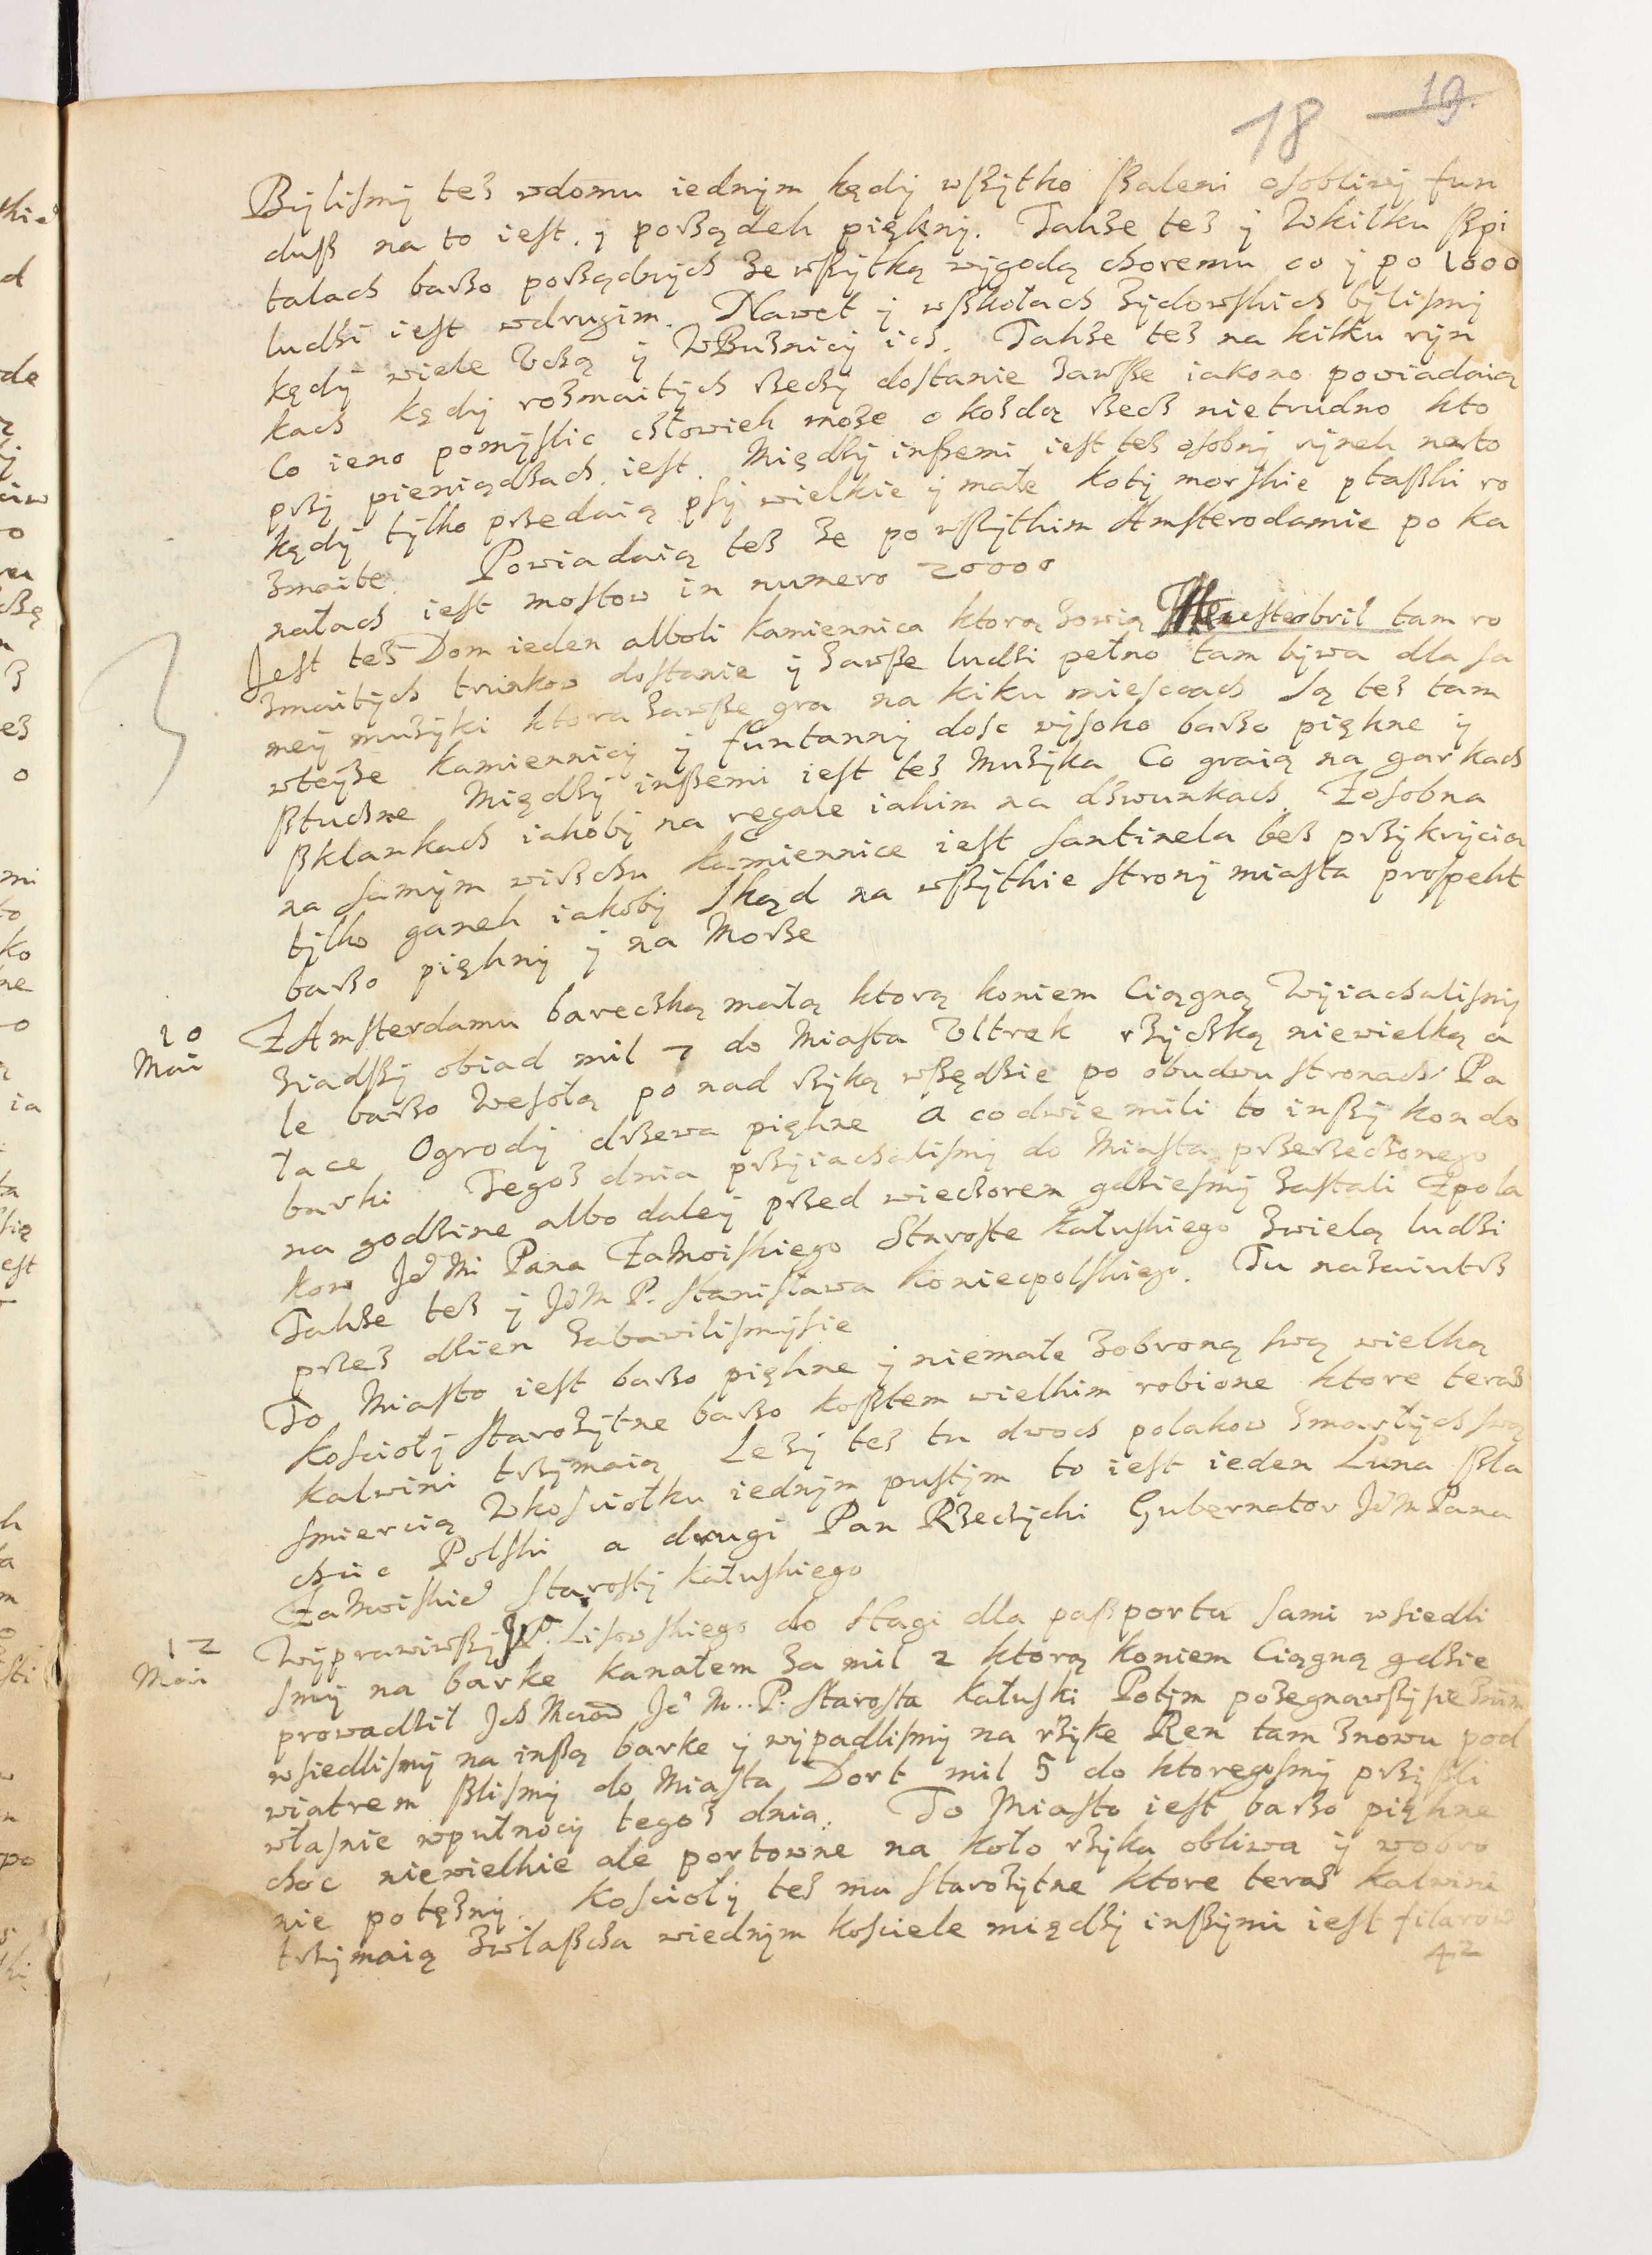 18 19.
Byliſmy teß wdomu iednym kędy wſzytko ſzaleni oſobliwy fun
duſz na to ieſt. y porządek piękny. Takze tez y Wkilku ſzpi
talach barzo porządnych ze wſzytką wygodą choremu co y po 1000
ludzi ieſt wdrugim. Nawet y wſzkołach Zydowſkich byliſmy
kędy wiele Vczą y WBuznicy ich. Takze tez na kilku ryn
kach kędy rozmaitych rzeczy doſtanie zawſze iakono powiadaią
Co ieno pomyſlic człowiek moze o kozdą rzecz nietrudno kto
przy pieniądzach ieſt. Między inſzemi ieſt tez oſobny rynek na to
kędy tylko przedaią pſy wielkie y małe koty morſkie ptaſzki ro
zmaite. Powiadaią tez ze po wſzytkim Amſterodamie po ka
nałach ieſt moſtow in numero 20000
Jeſt tez Dom ieden alboli kamiennica ktorą zowią tam ro
zmaitych trunkow doſtanie y zawſze ludzi pełno tam bywa dla ſa
mey muzyki ktora zawſze gra na kiku mieſcach Są tez tam
wteyze kamiennicy y funtanny doſc wyſoko barzo piękne y
ſztuczne Między inſzemi ieſt tez Muzyka Co graią na garkach
ſzklankach iakoby na regale iakim na dzwunkach. Zoſobna
na ſamym wirzchu kamiennice ieſt ſantinela bez przykrycia
tylko ganek iakoby ſkąd na wſzytkie ſtrony miaſta proſpekt
barzo piękny y na Morze
10
Mai
ZAmſterdamu bareczką małą ktorą koniem Ciągną Wyiachaliſmy
ziadſzy obiad mil 7 do Miaſta Vltrek rzyczką niewielką a
le barzo Weſołą ponad rzyką wſzędzie po obudwu ſtronach Pa
łace Ogrody drzewa piękne a co dwie mili to inſzy kon do
barki Tegoz dnia przyiachaliſmy do Miaſta przerzeczonego
na godzine albo daley przed wieczorem gdzieſmy zaſtali Zpola
kow Je° Mi Pana Zamoiſkiego Staroſte kałuſkiego zwielą ludzi
Takze tez y JeM P. Staniſława koniecpolſkiego. Tu nazaiutrz
przez dzien zabawiliſmyſie
To Miaſto ieſt barzo piękne y niemałe zobroną ſwą wielką
koſcioły ſtarozytne barzo koſztem wielkim robione ktore teraz
kalwini trzymaią Lezy tez tu dwoch polakow zmarłych ſwą
ſmiercią Wkoſciołku iednym puſtym to ieſt ieden Luna ſzla
chcic Polſki a drugi Pan Rzeczycki Gubernator JeM Pana
Zamoiſkie° ſtaroſty kałuſkiego
12
Mai
Wyprawiwſzy P. Liſowſkiego do Hagi dla paſzportu ſami wſiedli
ſmy na barke kanałem za mil 2 ktorą koniem Ciągną gdzie
prowadził Je° M. P. ſtaroſta kałuſki Potym pozegnawſzyſie znim
wſiedliſmy na inſzą barke y wypadliſmy na rzyke Ren tam znowu pod
wiatrem ſzliſmy do Miaſta Dort mil 5 do ktoregoſmy przyſzli
właſnie wpułnocy tegoz dnia. To Miaſto ieſt barzo piękne
choc niewielkie ale portowne na koło rzyka obliwa y wobro
nie potęzny. koſcioły tez ma ſtarozytne ktore teraz kalwini
trzymaią zwłaſzcza wiednym koſciele między inſzymi ieſt filarow
42